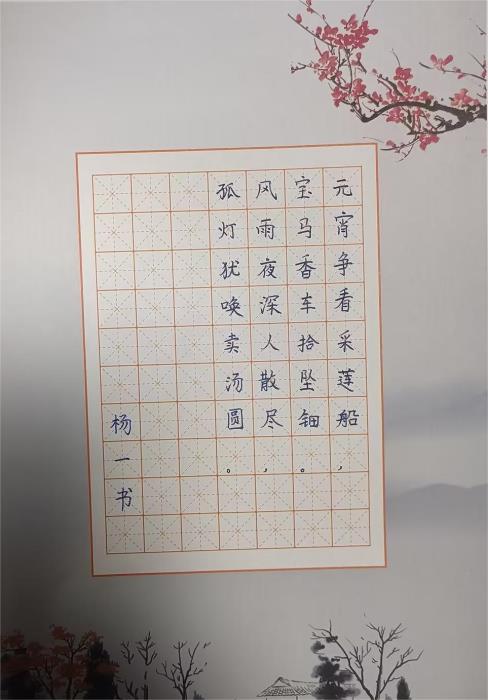 元宵争看采莲船，
宝马香车拾坠钿。
风雨夜深人散尽，
孤灯犹唤卖汤圆。
杨一书